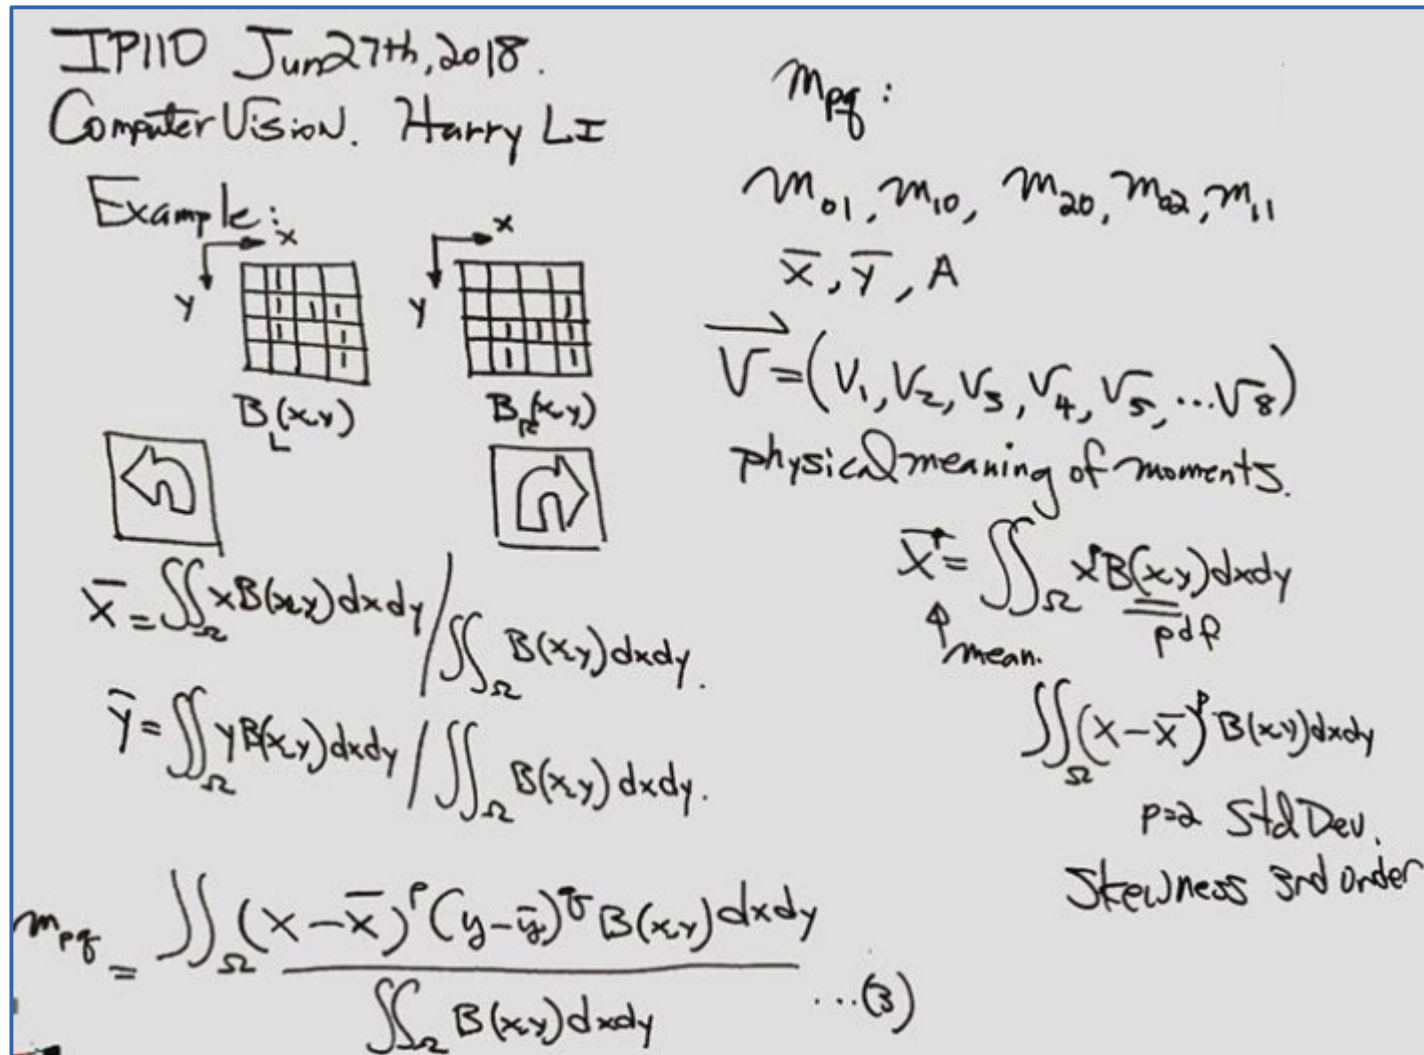 IP110 Jun27th,2018.
Computer Vision. Harry LI
Example:
x
y
1
1 1 1
1 1
1
B_L(x,y)
x
y
1
1 1 1
1 1
B_R(x,y)
x̄ = ∬_Ω xB(x,y)dxdy / ∬_Ω B(x,y)dxdy.
ȳ = ∬_Ω yB(x,y)dxdy / ∬_Ω B(x,y)dxdy.
m_pq = ∬_Ω (x-x̄)^p (y-ȳ)^q B(x,y)dxdy
∬_Ω B(x,y)dxdy ...(3)
m_pq:
m_01, m_10, m_20, m_02, m_11
x̄, ȳ, A
V⃗ = (V_1, V_2, V_3, V_4, V_5, ...V_8)
physical meaning of moments.
x̄^p = ∬_Ω x^p B(x,y)dxdy
mean.
pdf
∬_Ω (x-x̄)^p B(x,y)dxdy
p=2 Std Dev.
Skewness 3rd order